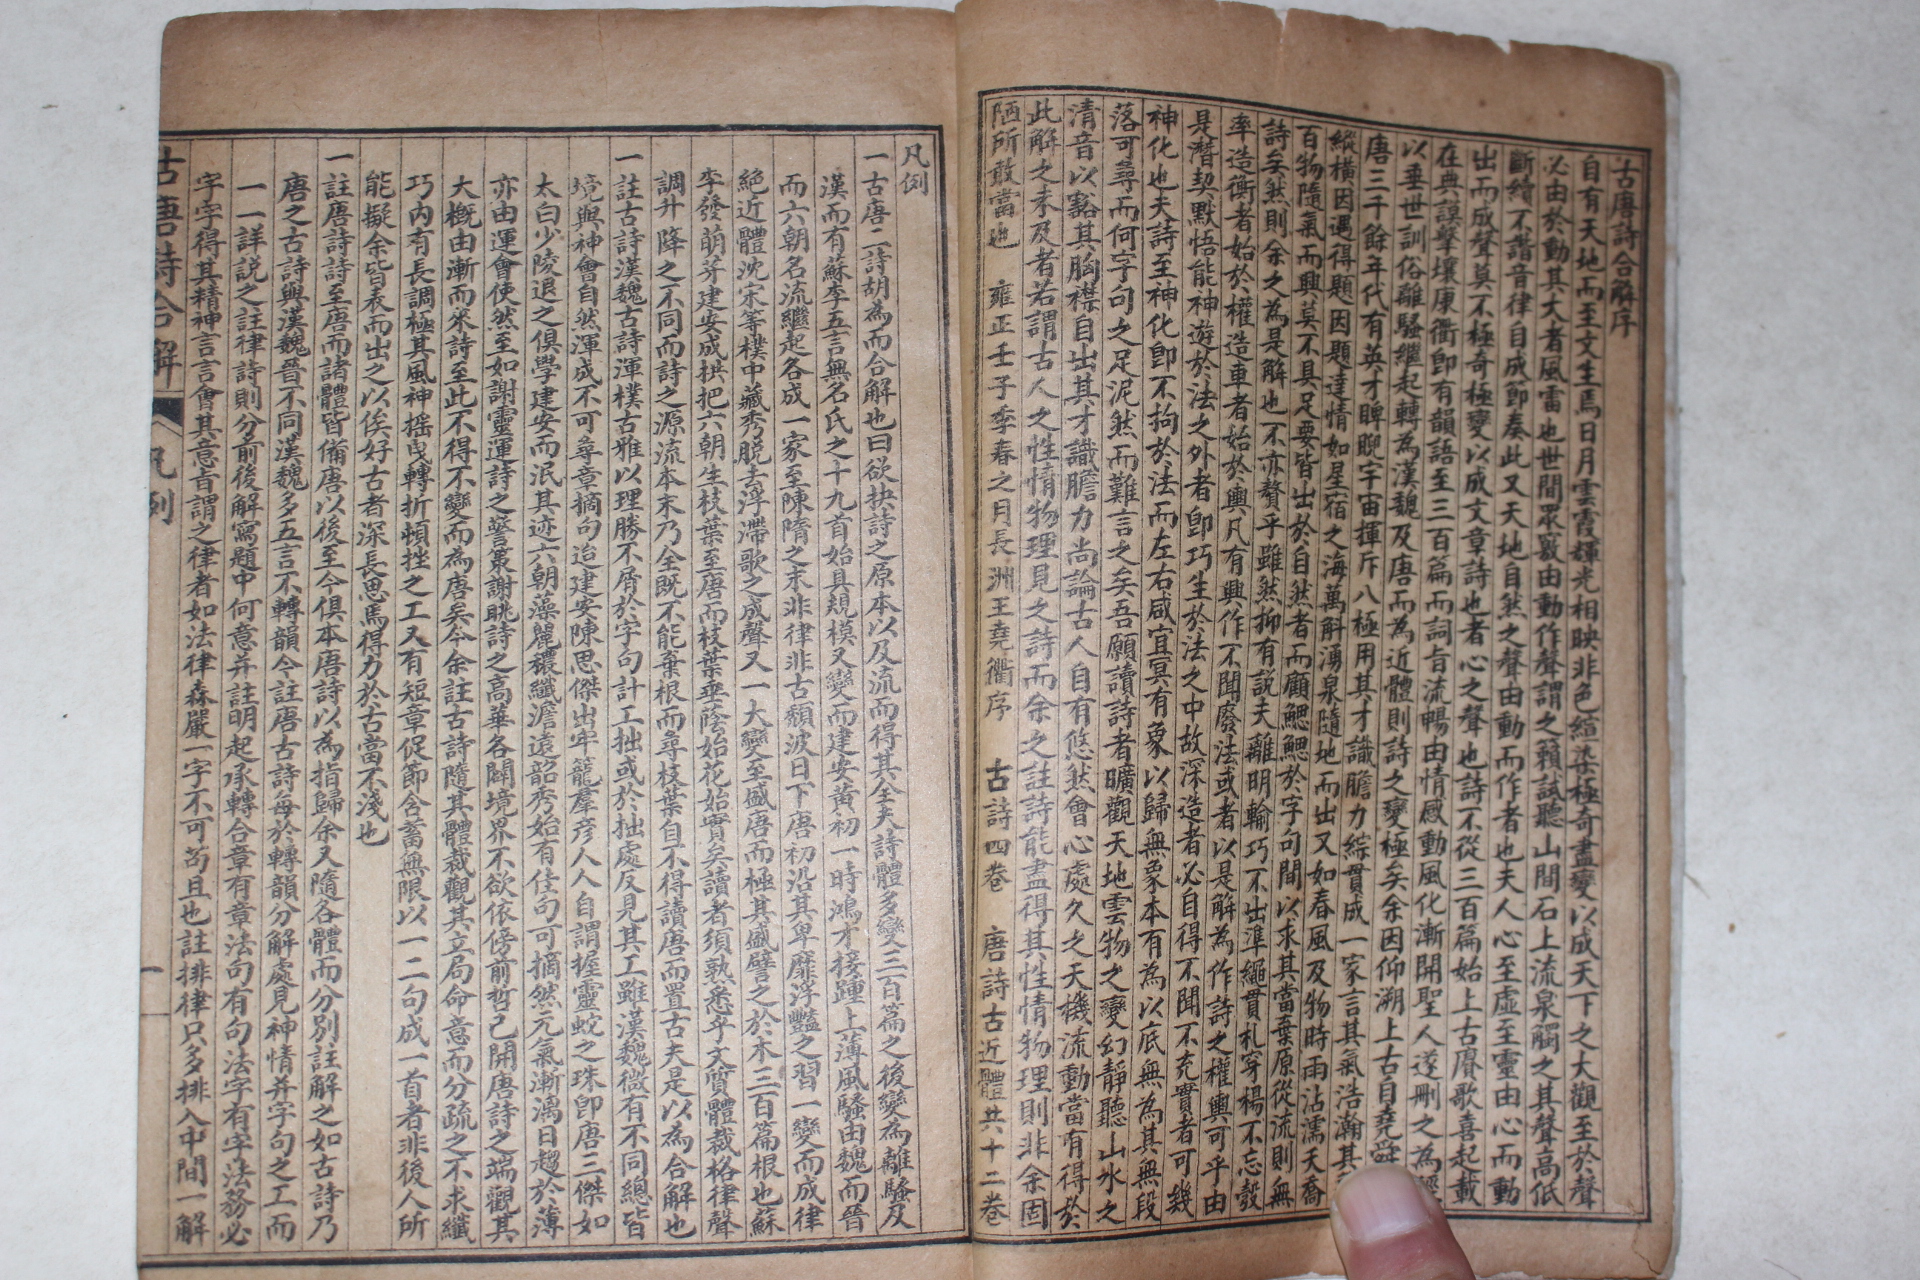 古唐詩合解序
自有天地而至文生焉日月雲霞輝光相映非色絢染極奇盡變以成天下之大觀至於聲
必由於動其大者風雷也世間眾竅由動作聲謂之籟試聽山間石上流泉觸之其聲高低
斷續不譜音律自成節奏此又天地自然之聲由動而作者也夫人心至虛至靈由心而動
出而成聲莫不極奇極變以成文章詩也者心之聲也詩不從三百篇始上古賡歌喜起載
在典謨擊壤康衢卽有韻語至三百篇而詞旨流暢由情感動風化漸開聖人逐刪之為經
以垂世訓俗離騷繼起轉為漢魏及唐而為近體則詩之變極矣余因仰溯上古自堯舜
唐三千餘年代有英才睥睨宇宙揮斥八極用其才識膽力綜貫成一家言其氣浩瀚其
縱橫因遇得題因題達情如星宿之海萬斛湧泉隨地而出又如春風及物時雨沾濡天喬
百物隨氣而興莫不具足要皆出於自然者而顧鰓鰓於字句間以求其當棄原從流則無
詩矣然則余之為是解也不亦贅乎雖然抑有說夫離明輸巧不出準繩貫札穿楊不忘彀
率造衡者始於權造車者始於輿凡有興作不聞廢法或者以是解為作詩之權輿可乎由
是潛契默悟能神遊於法之外者卽巧生於法之中故深造者必自得不聞不充實者可幾
神化也夫詩至神化卽不拘於法而左右咸宜冥有象以歸無象本有為以底無為其無段
落可尋而何字句之足泥然而難言之矣吾願讀詩者曠觀天地雲物之變幻靜聽山水之
清音以豁其胸襟自出其才識膽力尚論古人自有悠然會心處久之天機流動當有得於
此解之未及者若謂古人之性情物理見之詩而余之註詩能盡得其性情物理則非余固
陋所敢當也 雍正壬子季春之月長洲王堯衢序 古詩四卷 唐詩古近體共十二卷
凡例
一古唐二詩胡為而合解也曰欲抉詩之原本以及流而得其全夫詩體多變三百篇之後變為離騷及
漢而有蘇李五言無名氏之十九首始具規模又變而建安黃初一時鴻才接踵上薄風騷由魏而晉
而六朝名流繼起各成一家至陳隋之末非律非古頹波日下唐初沿其卑靡浮豔之習一變而成律
絕近體沈宋等樸中藏秀脫去浮滯歌之成聲又一大變至盛唐而極其盛譬之於木三百篇根也蘇
李發萌芽建安成拱把六朝生枝葉至唐而枝葉垂蔭始花始實矣讀者須孰悉乎文質體裁格律聲
調升降之不同而詩之源流本末乃全既不能棄根而尋枝葉自不得讀唐而置古夫是以為合解也
一註古詩漢魏古詩渾樸古雅以理勝不屑於字句計工拙或於拙處反見其工雖漢魏微有不同總皆
境與神會自然渾成不可尋章摘句迨建安陳思傑出牢籠羣彦人人自謂握靈蛇之珠卽唐三傑如
太白少陵退之俱學建安而泯其迹六朝藻麗穠纖澹遠韶秀始有佳句可摘然元氣漸漓日趨於薄
亦由運會使然至如謝靈運詩之警策謝眺詩之高華各闢境界不欲依傍前哲已開唐詩之端觀其
大概由漸而來詩至此不得不變而為唐矣今余註古詩隨其體裁觀其立局命意而分疏之不求纖
巧內有長調極其風神搖曳轉折頓挫之工又有短章促節含蓄無限以一二句成一首者非後人所
能擬余皆表而出之以俟好古者深長思焉得力於古當不淺也
一註唐詩詩至唐而諸體皆備唐以後至今俱本唐詩以為指歸余又隨各體而分別註解之如古詩乃
唐之古詩與漢魏晉不同漢魏多五言不轉韻今註唐古詩每於轉韻分解處見神情并字句之工而
一一詳說之註律詩則分前後解寫題中何意并註明起承轉合章有章法句有句法字有字法務必
字字得其精神言言會其意旨謂之律者如法律森嚴一字不可苟且也註排律只多排入中間一解
古唐詩合解 凡例 一